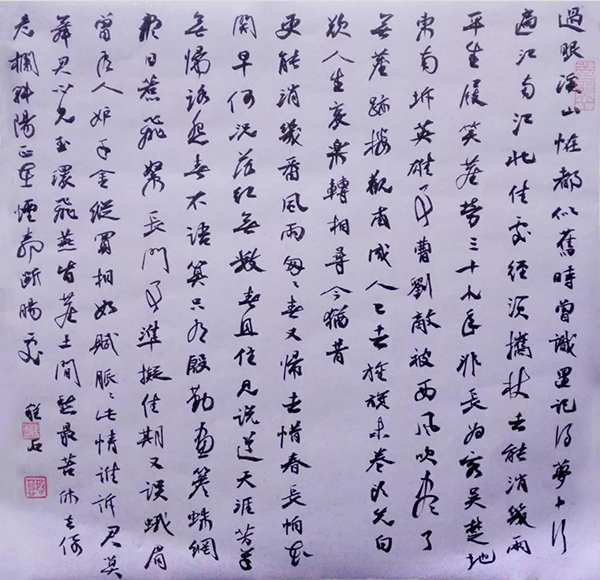 過眼溪山恠都似舊時曾識還記得夢中行
遍江南江北佳處徑須攜杖去能消幾兩
平生屐笑塵勞三十九年非長為客吳楚地
東南坼英雄事曹劉敵被西風吹盡了
無塵跡樓觀甫成人已去旌旗未卷頭先白
歎人生哀樂轉相尋今猶昔
更能消幾番風雨匆匆春又歸去惜春長怕花
開早何況落紅無數春且住見說道天涯芳草
無歸路怨春不語算只有殷勤畫簷蛛網
盡日惹飛絮長門事準擬佳期又誤蛾眉
曾有人妒千金縱買相如賦脈脈此情誰訴君莫
舞君不見玉環飛燕皆塵土閒愁最苦休去倚
危欄斜陽正在煙柳斷腸處